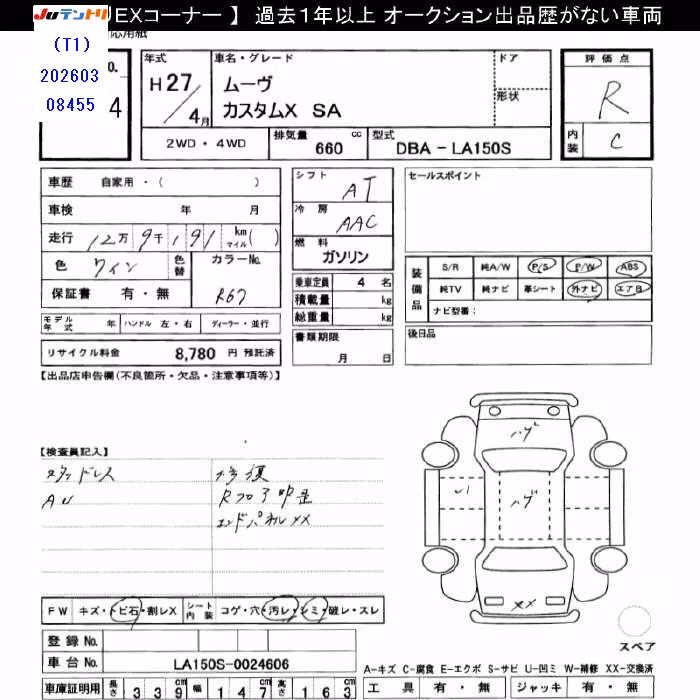 Juテントリ
EXコーナー 】 過去1年以上 オークション出品歴がない車両
応用紙
(T1)
202603
08455
4
年式
H27/4月
車名・グレード
ムーヴ
カスタムX SA
ドア
形状
評価点
R
内装
C
2WD・4WD
排気量
660 cc
型式
DBA - LA150S
車歴 自家用・( )
車検 年 月
走行 12万9千191 km マイル( )
色 ワイン
色替
カラーNo.
R67
保証書 有・無
シフト
AT
冷房
AAC
燃料
ガソリン
乗車定員 4 名
積載量 kg
総重量 kg
書類期限
月 日
セールスポイント
装備品
S/R 純A/W P/S P/W ABS
純TV 純ナビ 革シート 外ナビ エアB
ナビ型番:
後日品
モデル年式 年 ハンドル 左・右 ディーラー・並行
リサイクル料金 8,780 円 預託済
【出品店申告欄(不良箇所・欠品・注意事項等)】
【検査員記入】
スタッドレス
AU
修復
Rフロア凹歪
エンドパネルXX
ハゲ
U1
ハゲ
XX
FW キズ・トビ石・割レX
シート内装 コゲ・穴・汚レ・シミ・破レ・スレ
登録No.
車台No. LA150S-0024606
車庫証明用 長さ 339 幅 147 高さ 163
スペア
A-キズ C-腐食 E-エクボ S-サビ U-凹ミ W-補修 XX-交換済
工具 有・無 ジャッキ 有・無